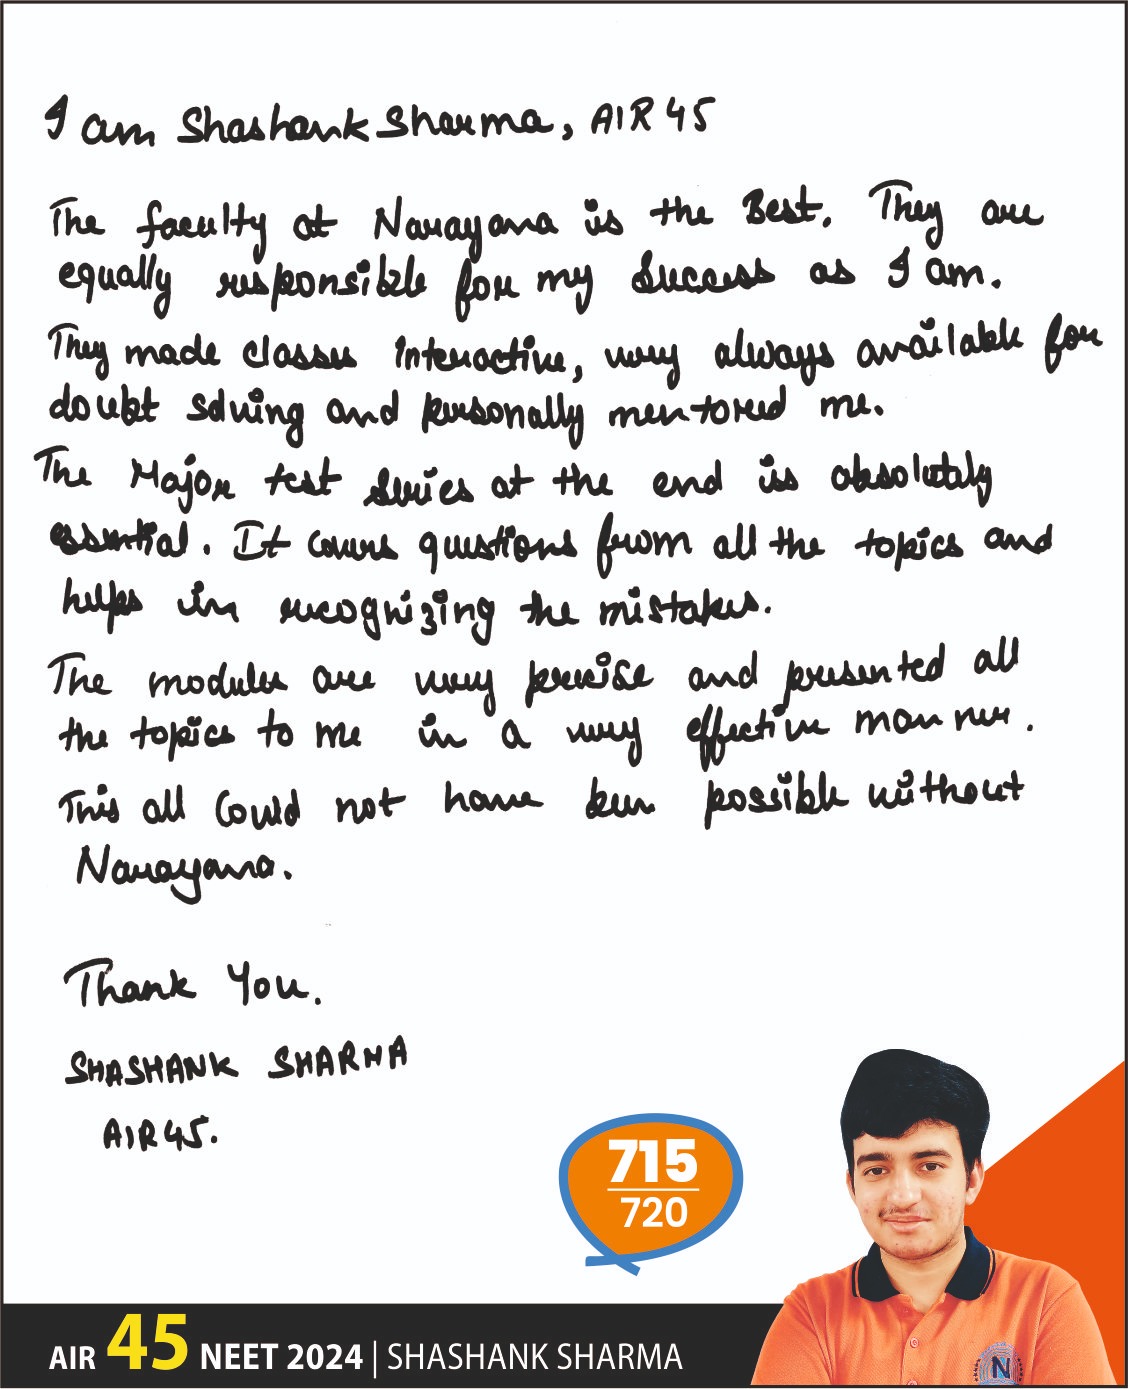 I am Shashank Sharma, AIR 45
The faculty at Narayana is the Best. They are
equally responsible for my Success as I am.
They made classes Interactive, very always available for
doubt solving and personally mentored me.
The Major test series at the end is absolutely
essential. It covers questions from all the topics and
helps in recognizing the mistakes.
The modules are very precise and presented all
the topics to me in a very effective manner.
This all Could not have been possible without
Narayana.
Thank You.
SHASHANK SHARMA
AIR 45.
715
720
AIR 45 NEET 2024 | SHASHANK SHARMA
N